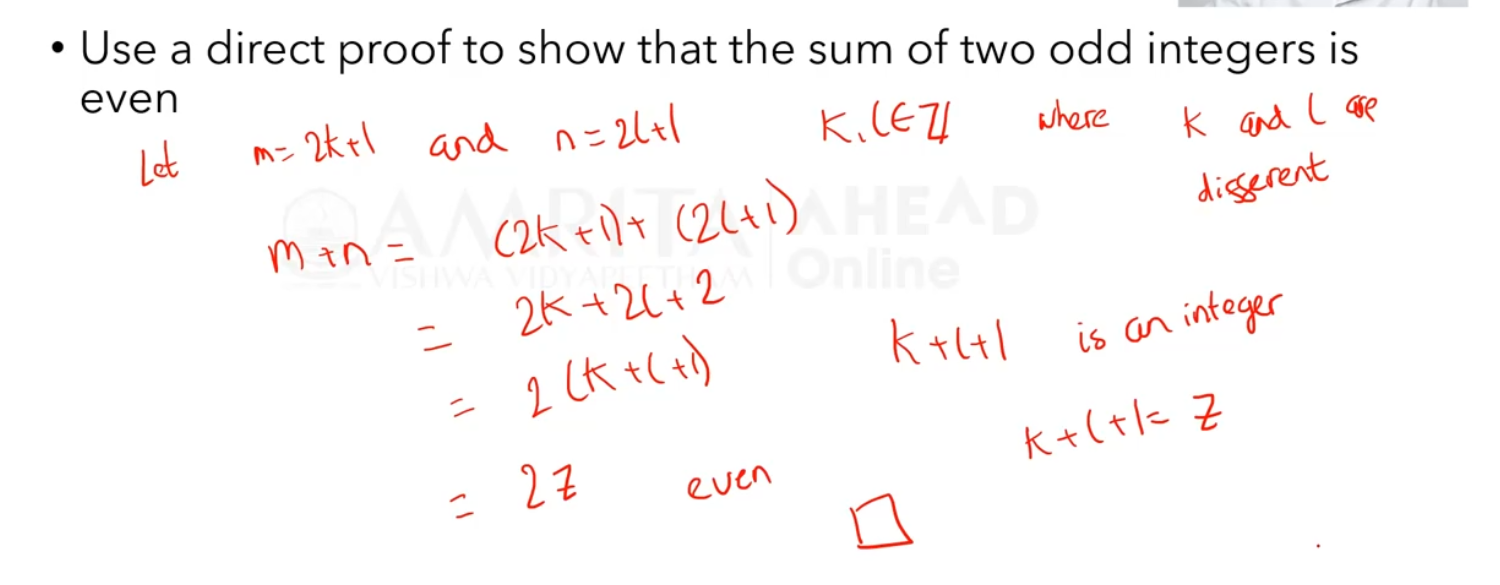 • Use a direct proof to show that the sum of two odd integers is
even
Let m = 2k+1 and n = 2l+1 k, l ∈ ℤ where k and l are
different
m+n = (2k+1)+(2l+1)
= 2k+2l+2
= 2(k+l+1) k+l+1 is an integer
k+l+1 = z
= 2z even □
AMRITA AHEAD
VISHWA VIDYAPEETHAM Online